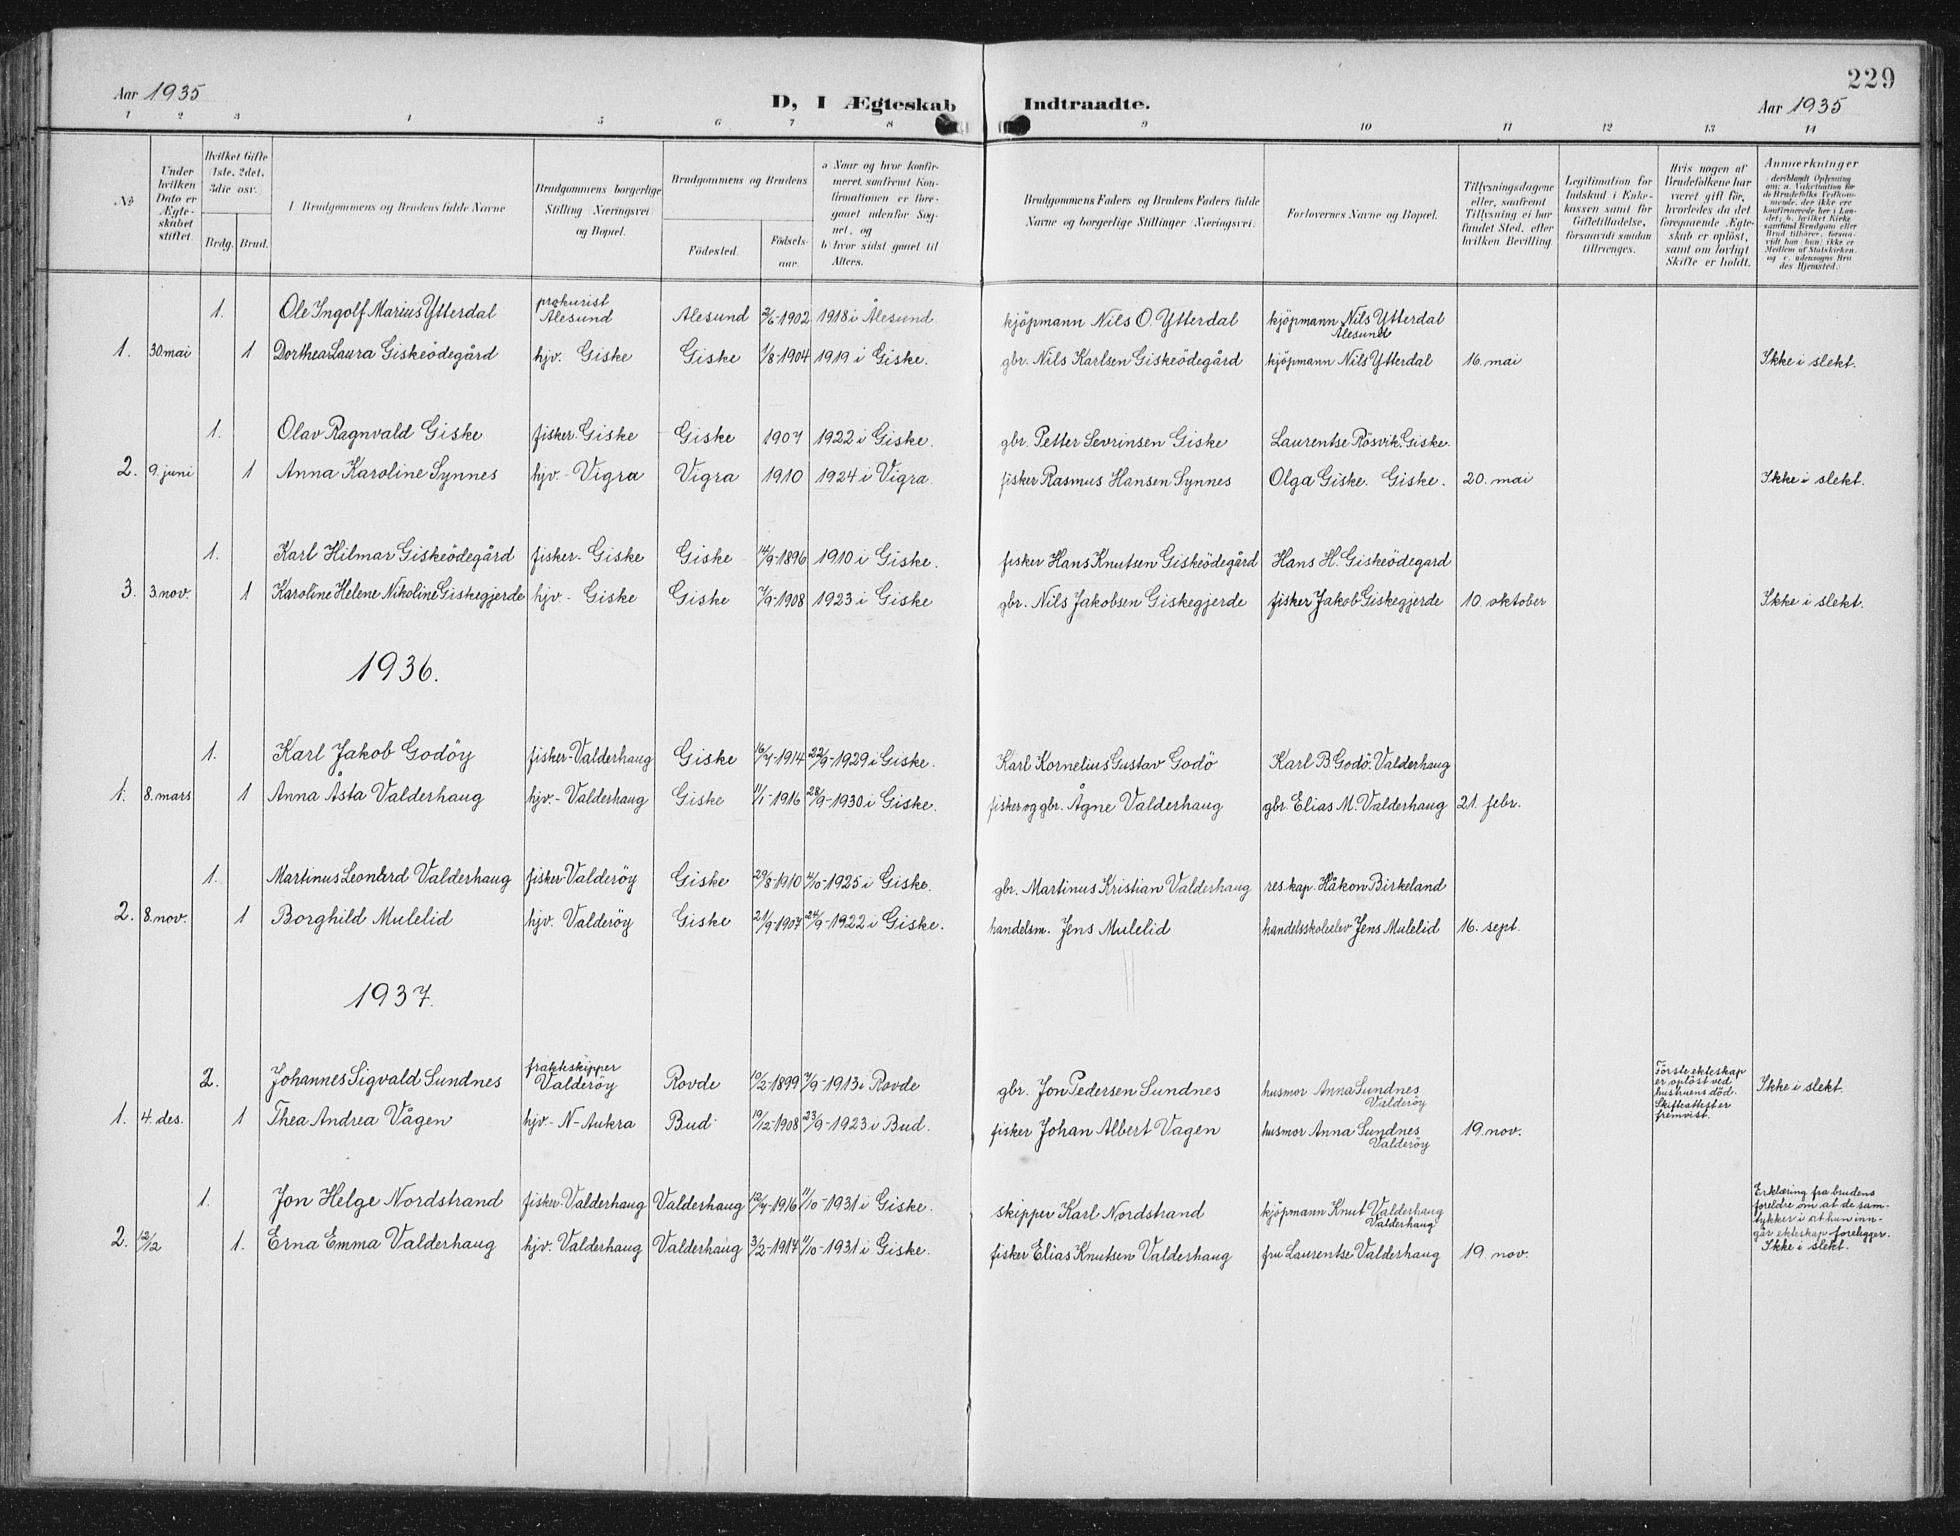 229
Aar 1935
D, I Ægteskab Indtraadte.
Aar 1935
1 2 3 4 5 6 7 8 9 10 11 12 13 14
№
Under hvilken Dato er Ægteskabet stiftet.
Hvilket Gifte 1ste, 2det, 3die osv.)
Brdg. Brud.
1 Brudgommens og Brudens fulde Navne
Brudgommens borgerlige Stilling Næringsvei og Bopæl.
Brudgommens og Brudens
Fødested.
Fødselsaar.
a Naar og hvor konfirmeret, saafremt Konfirmationen er foregaaet udenfor Sognet, og
b) hvor sidst gaaet til Alters.
Brudgommens Faders og Brudens Faders fulde Navne og borgerlige Stillinger Næringsvei.
Forlovernes Navne og Bopæl.
Tillysningsdagene eller, saafremt Tillysning ei har fundet Sted, efter hvilken Bevilling.
Legitimation for Indskud i Enkekassen samt for Giftetilladelse, forsaavidt saadan tiltrænges.
Hvis nogen af Brudefolkene har været gift før, hvorledes da det foregaaende Ægteskab er opløst, samt om lovligt Skifte er holdt.
Anmærkninger (deriblandt Oplysning om: a. Vakcination for de Brudefolks Vedkommende, der ikke ere konfirmerede her i Landet; b. hvilket Kirkesamfund Brudgom eller Brud tilhører, forsaavidt han (hun) ikke er Medlem af Statskirken, og c. udensogns Brudes Hjemsted.
1. Ole Ingolf Marius Ytterdal prokurist Ålesund Ålesund 2/6-1902 1918 i Ålesund. kjöpmann Nils O. Ytterdal kjöpmann Nils Ytterdal Ålesund
1. 30 mai 1 Dorthea Laura Giskeödegård hjv. Giske Giske 1/8-1904 1919 i Giske. gbr. Nils Karlsen Giskeödegård kjöpmann Nils Ytterdal 16. mai Ikke i slekt.
1. Olav Ragnvald Giske fisker. Giske Giske 1907 1922 i Giske. gbr. Petter Sevrinsen Giske Laurentse Rösvik, Giske.
2. 9. juni 1 Anna Karoline Synnes hjv. - Vigra Vigra 1910 1924 i Vigra. fisker Rasmus Hansen Synnes Olga Giske. Giske. 20. mai Ikke i slekt.
1. Karl Hilmar Giskeödegård fisker. Giske Giske 14/9-1896 1910 i Giske. fisker Hans Knutsen Giskeödegård Hans H. Giskeödegard
3. 3. nov. 1 Karoline Helene Nikoline Giskegjerde hjv - Giske Giske 7/9-1908 1923 i Giske gbr. Nils Jakobsen Giskegjerde fisker Jakob Giskegjerde 10. oktober Ikke i slekt.
1936.
1. Karl Jakob Godöy fisker-Valderhaug Giske 16/7-1914 22/9-1929 i Giske. Karl Kornelius Gustav Godö Karl B. Godö. Valderhaug
1. 8. mars 1 Anna Åsta Valderhaug hjv.- Valderhaug Giske 11/1-1916 28/9-1930 i Giske. fisker og gbr. Ågne Valderhaug gbr. Elias M. Valderhaug 21. febr.
1. Martinus Leonard Valderhaug fisker-Valderöy Giske 29/8-1910 4/10-1925 i Giske. gbr. Martinus Kristian Valderhaug res. kap. Håkon Birkeland
2. 8. nov. 1 Borghild Mulelid hjv. Valderöy Giske 21/9-1907 24/9-1922 i Giske. handelsm. Jens Mulelid handelsskoleelev Jens Mulelid 16. sept.
1937.
2. Johannes Sigvald Sundnes fraktskipper Valderöy Rovde 10/2-1899 7/9-1913 i Rovde gbr. Jon Pedersen Sundnes husmor Anna Sundnes Valderöy Förste ekteskap er oplöst ved hustruens död. Skifteattest er fremvist. Ikke i slekt.
1. 4. des. 1 Thea Andrea Vågen hjv.- N-Aukra Bud 19/12-1908 23/9-1923 i Bud. fisker Johan Albert Vagen husmor Anna Sundnes Valderöy 19. nov.
1. Jon Helge Nordstrand fisker-Valderhaug Valderhaug 12/7-1916 11/10-1931 i Giske. skipper Karl Nordstrand kjöpmann Knut Valderhaug Valderhaug Erklæring fra brudens foreldre om at de samtykker i at hun inngår ekteskap foreligger. Ikke i slekt.
2. 12/12 1. Erna Emma Valderhaug hjv. Valderhaug Valderhaug 3/2-1917 11/10-1931 i Giske. fisker Elias Knutsen Valderhaug fru Laurentse Valderhaug 19. nov.